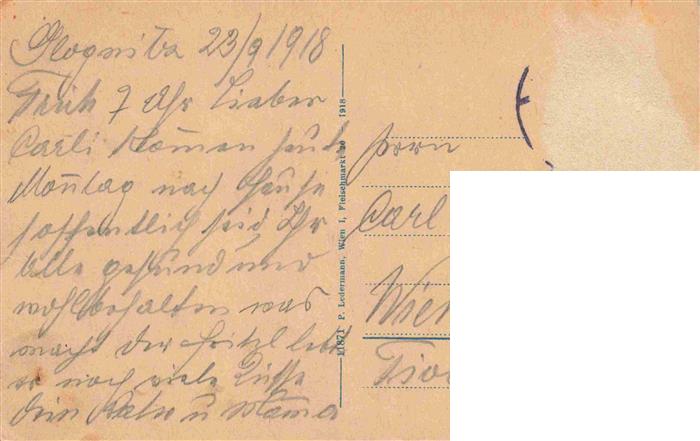 Glognitz 23/9 1918
Früh 7 Uhr Lieber
Carli Kommen heut
Montag nach Hause
hoffentlich seid Ihr
Alle gesund und
wohlbehalten was
macht der Fritzl lebt
er noch viele Küsse
dein u Mama
11871 P. Ledermann, Wien I, Fleischmarkt 20 1918
Herrn
Carl
Wien